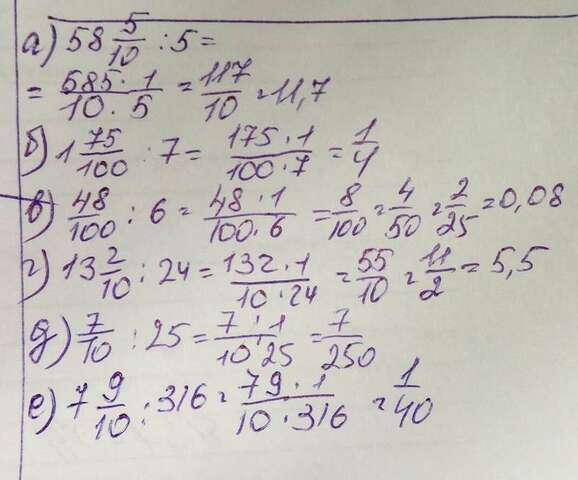 а) 58 5/10 : 5 =
= 585 · 1 / 10 · 5 = 117/10 = 11,7
б) 1 75/100 : 7 = 175 · 1 / 100 · 7 = 1/4
в) 48/100 : 6 = 48 · 1 / 100 · 6 = 8/100 = 4/50 = 2/25 = 0,08
г) 13 2/10 : 24 = 132 · 1 / 10 · 24 = 55/10 = 11/2 = 5,5
д) 7/10 : 25 = 7 · 1 / 10 · 25 = 7/250
е) 7 9/10 : 316 = 79 · 1 / 10 · 316 = 1/40